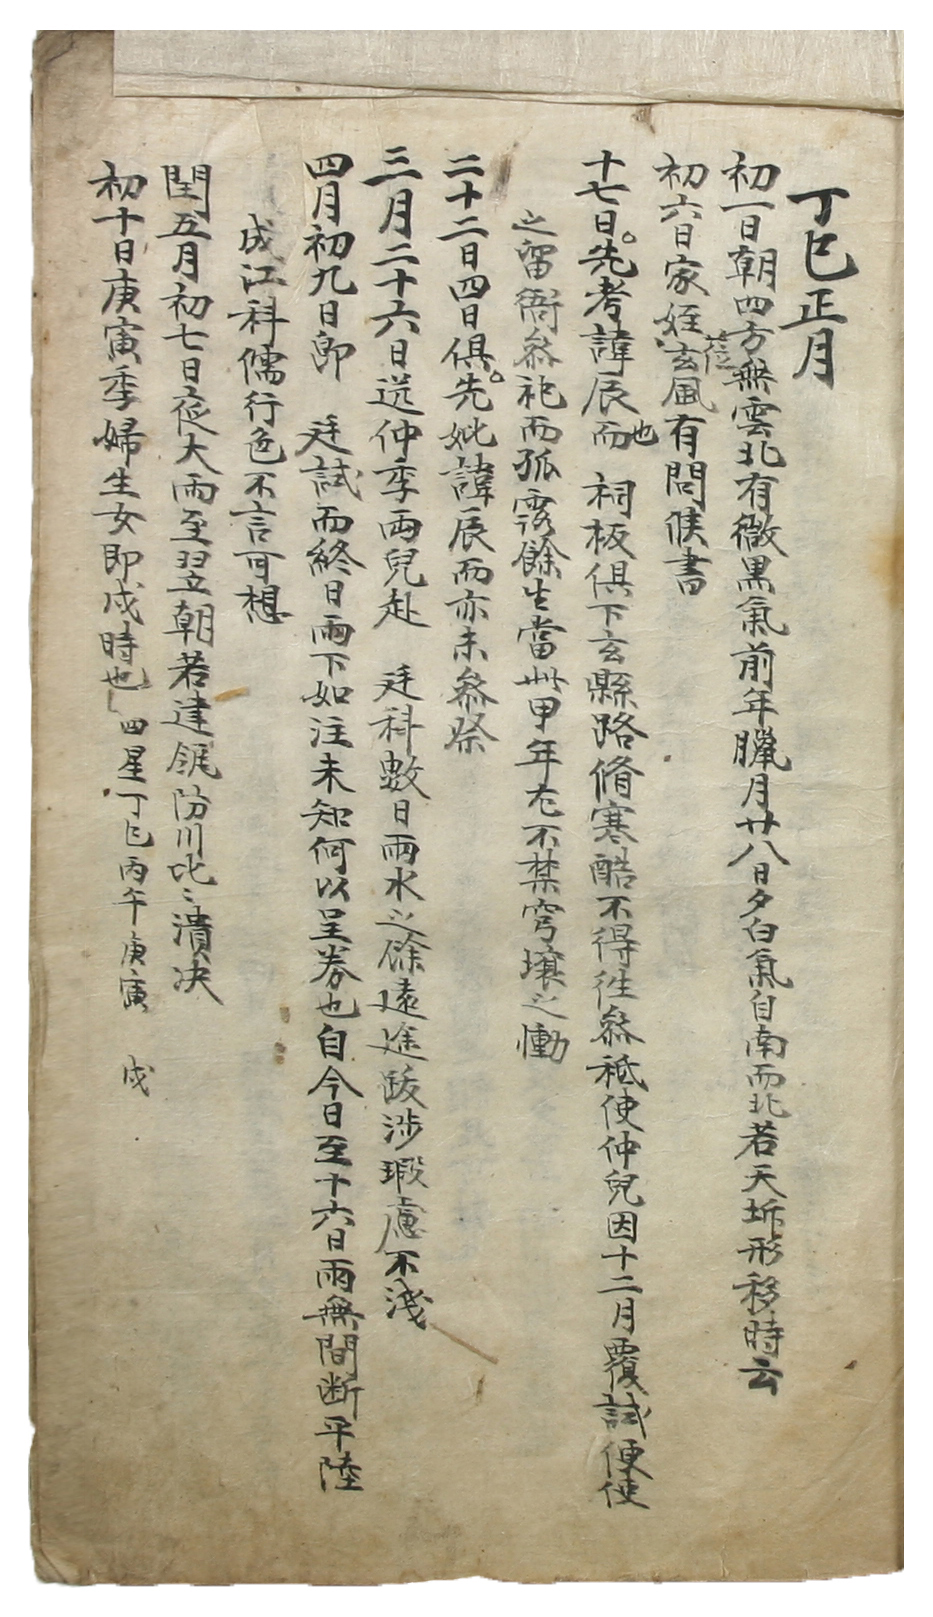 丁巳正月
初一日朝四方無雲北有微黑氣前年臘月廿八日夕白氣自南而北若天坼形移時云
初六日家姪玄風莅有問候書
十七日先考諱辰也而 祠板俱下玄縣路脩寒酷不得往叅祗使仲兒因十二月覆試便使
之留衙叅祀而孤露餘生當此甲年尤不禁穹壤之慟
二十二日四日俱先妣諱辰而亦未叅祭
三月二十六日送仲季兩兒赴 廷科數日雨水之餘遠途跋涉瑕慮不淺
四月初九日卽 廷試而終日雨下如注未知何以呈券也自今日至十六日雨無間断平陸
成江科儒行色不言可想
閏五月初七日夜大雨至翌朝若建瓴防川比〻潰决
初十日庚寅季婦生女卽戌時也 四星丁巳丙午庚寅 戌